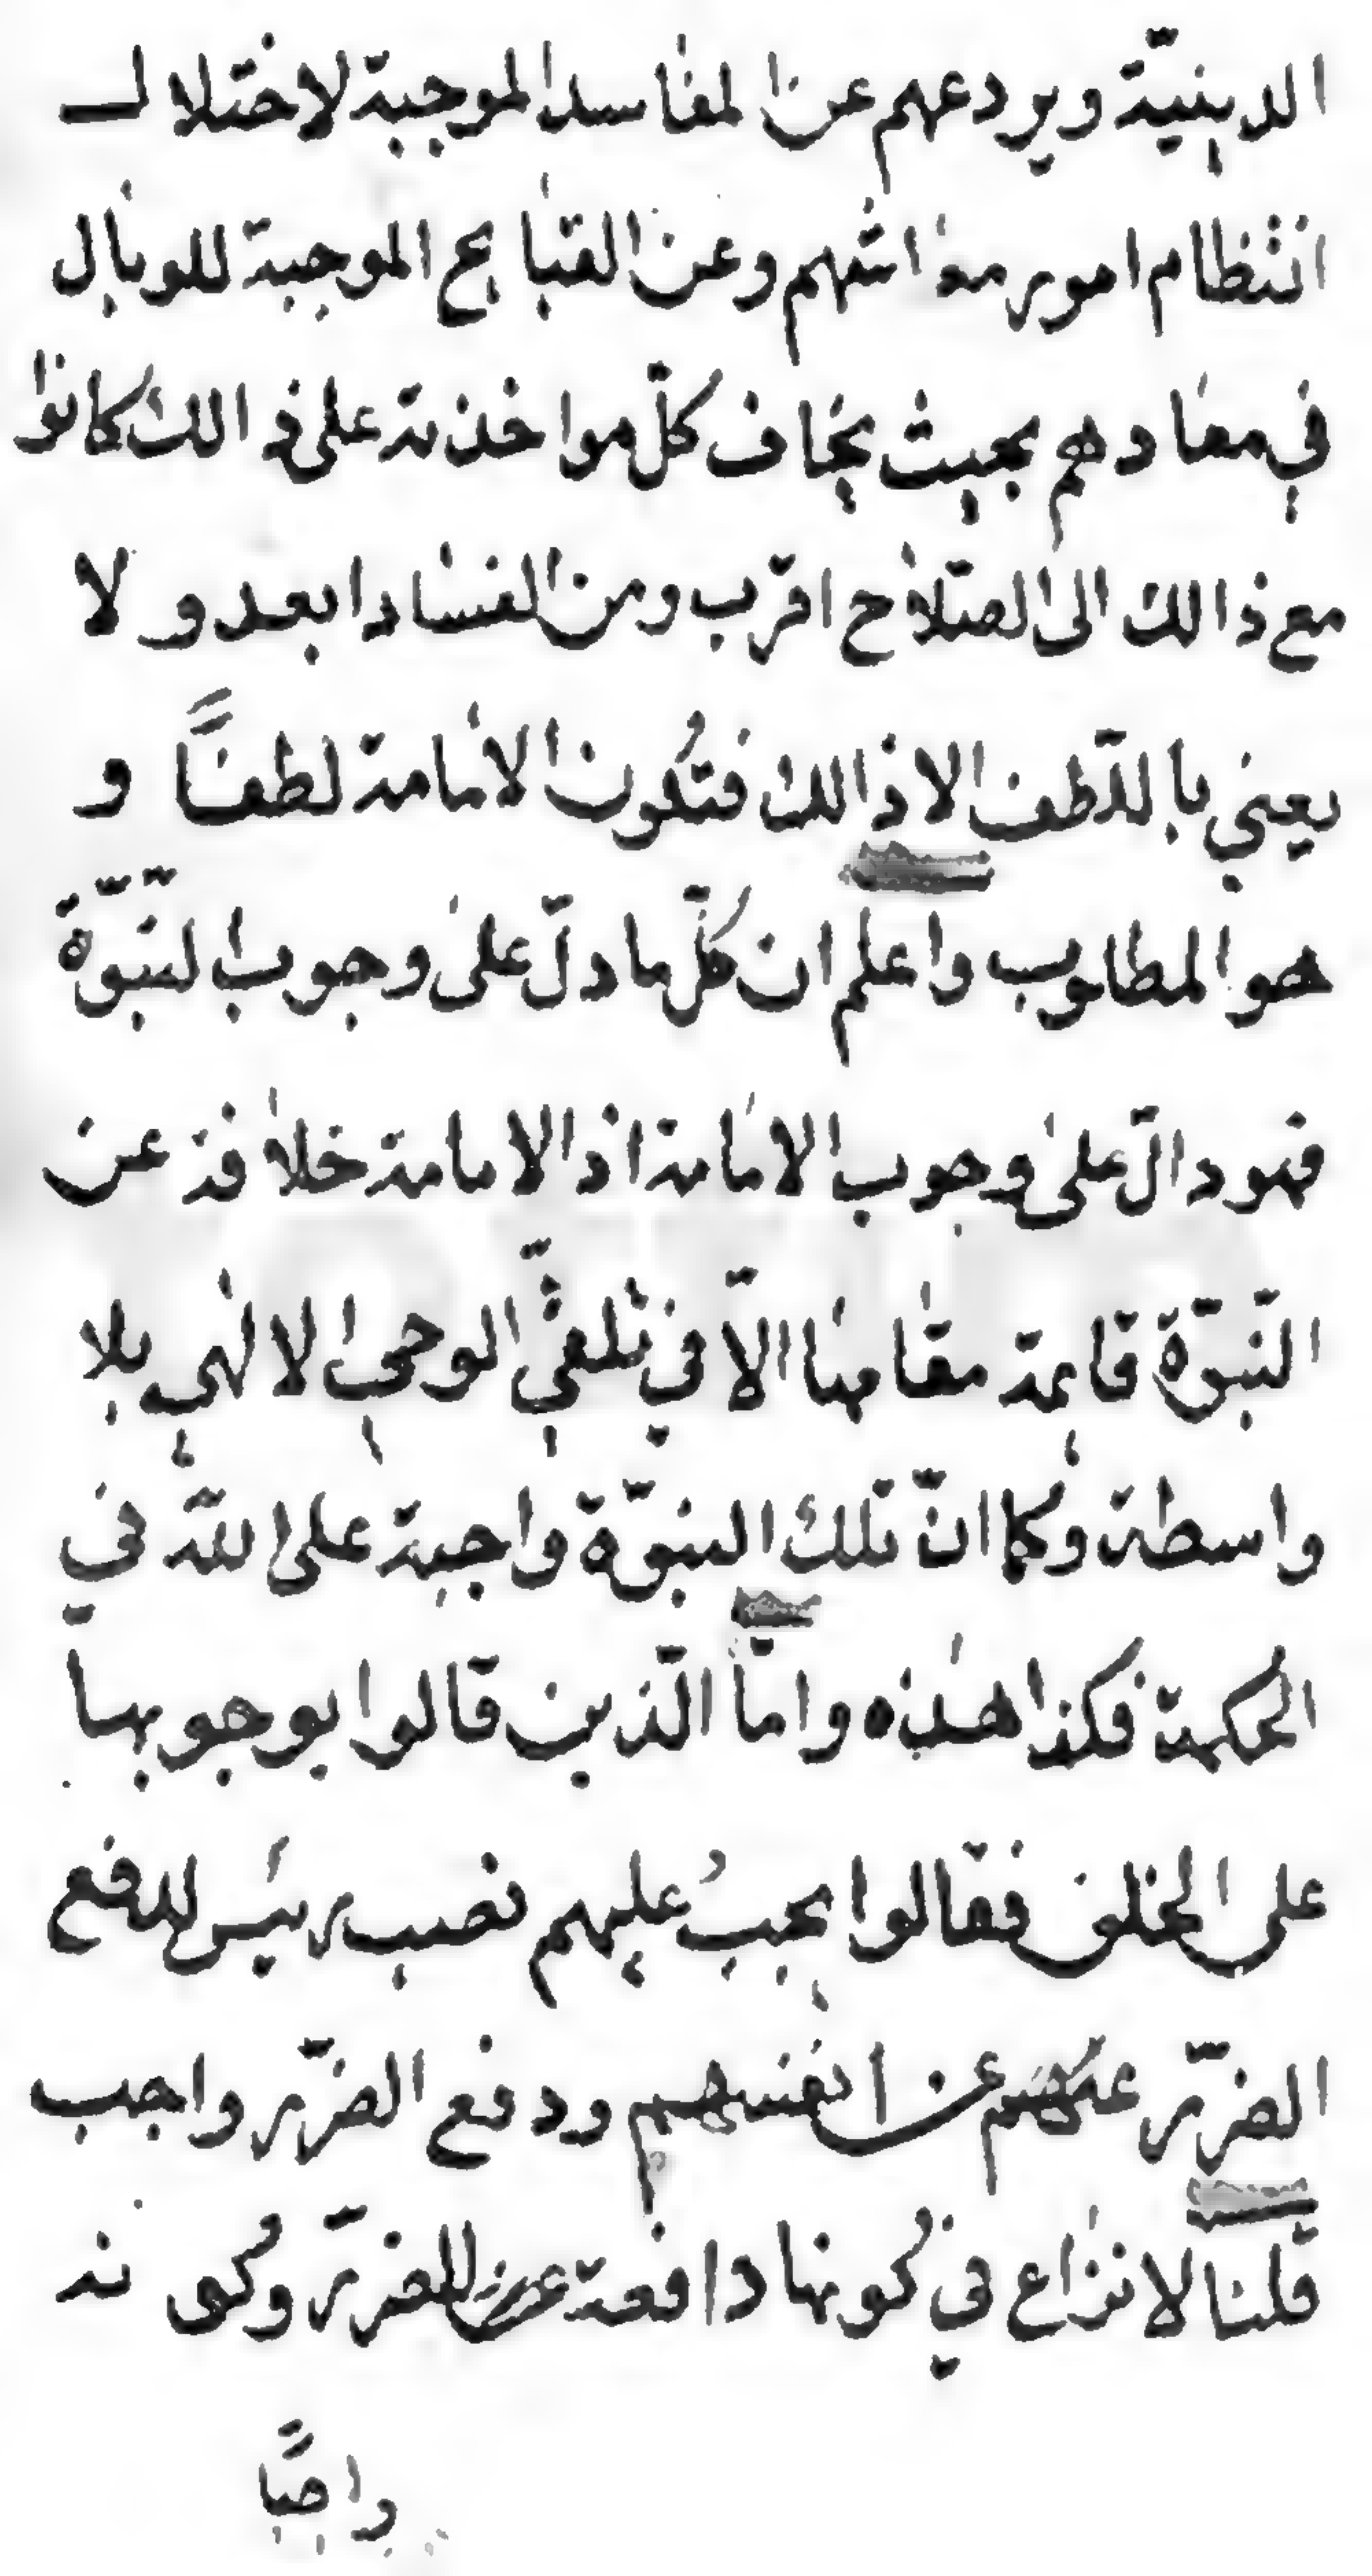 الدينيّة ويردعهم عن المفاسد الموجبة لاختلال
انتظام امور معاشهم وعن القبايح الموجبة للوبال
في معادهم بحيث يخاف كلّ مواخذته على ذالك كانوا
مع ذالك الى الصّلاح اقرب ومن الفساد ابعد ولا
يعني باللّطف الا ذالك فتكُون الامامة لطفاً و
هو المطلوب واعلم ان كلّ ما دلّ على وجوب النّبوّة
فهو دالّ على وجوب الامامة اذ الامامة خلافة عن
النّبوّة قايمة مقامها الاّ في تلقّي الوحي الالهي بلا
واسطة وكما انّ تلك النبوّة واجبة على اللّه في
الحكمة فكذا هذه وامّا الّذين قالوا بوجوبها
على الخلق فقالوا يجبُ عليهم نصب رئيس للدفع
الضّرر عن انفسهم ودفع الضّرر واجب
قلنا لا نزاع في كُونها دافعة للضّرر وكُونه
واجباً